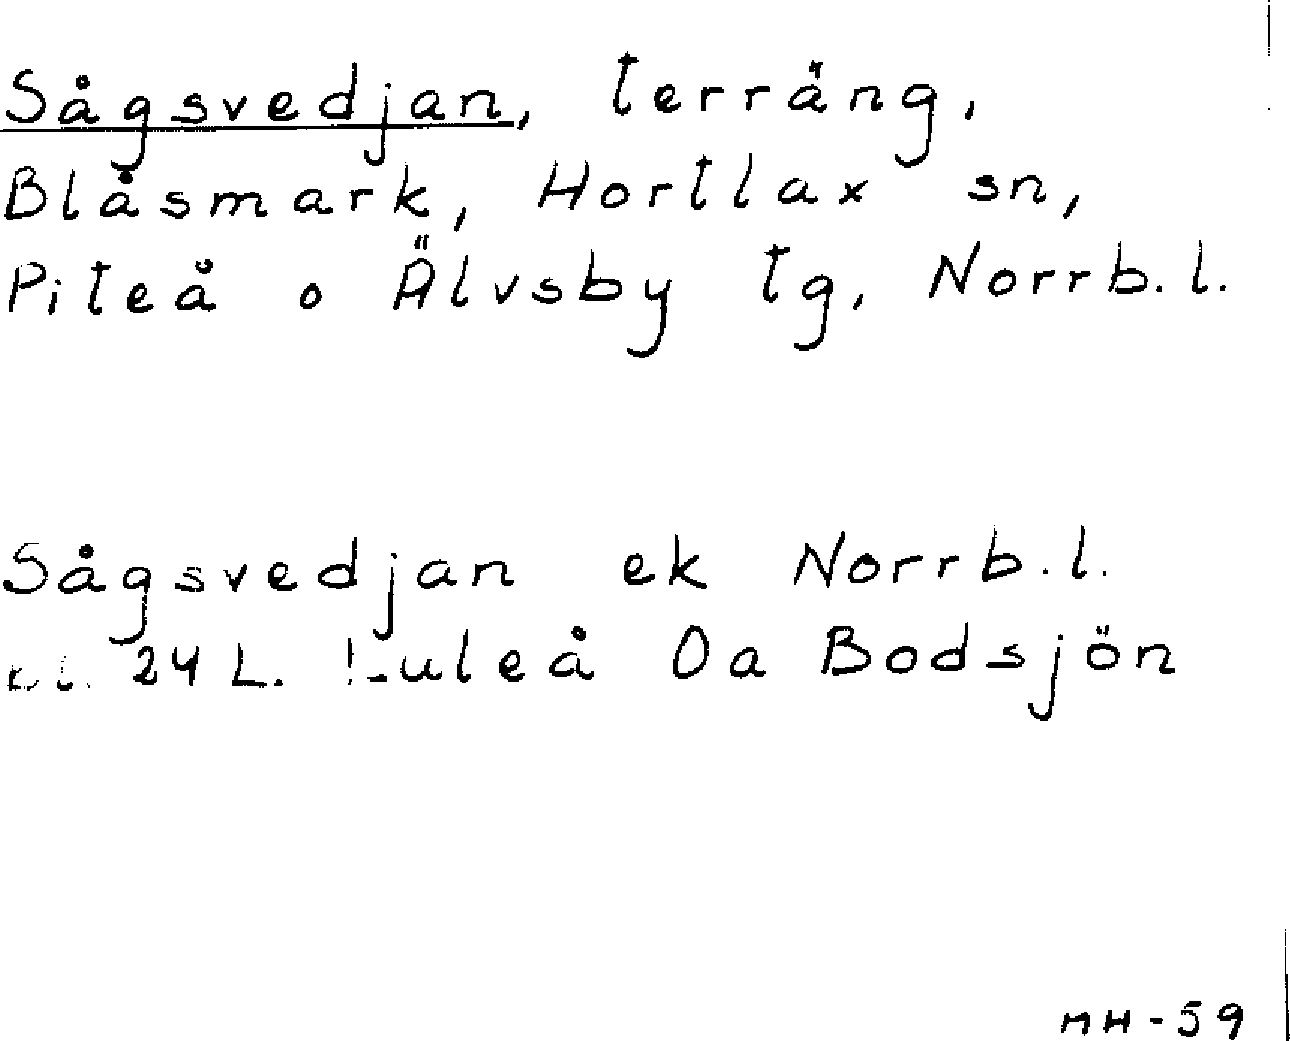 Sågsvedjan, terräng,
Blåsmark, Hortlax sn,
Piteå o Älvsby tg, Norrb.l.
Sågsvedjan ek Norrb.l.
bl. 24 L. Luleå Oa Bodsjön
MH-59